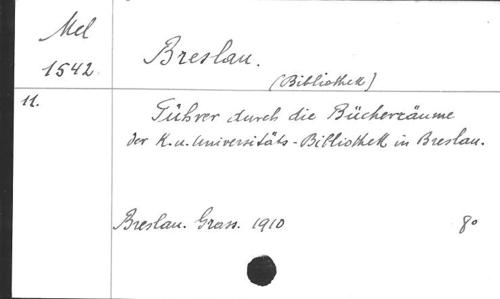 Mel
1542.
Breslau.
(Bibliothek)
11.
Führer durch die Bücherräume
der K. u. Universitäts-Bibliothek in Breslau.
Breslau. Grass. 1910
8°